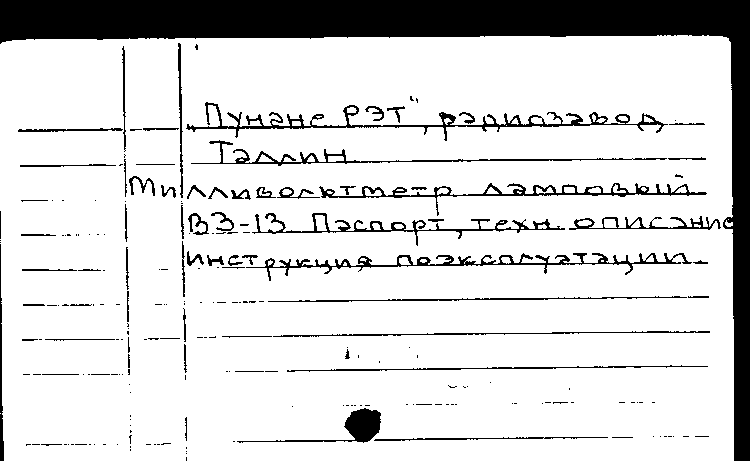 „Пунане РЭТ", радиозавод
Таллин
Милливольтметр ламповый
В3-13 Паспорт, техн. описание
инструкция поэксплуатации.